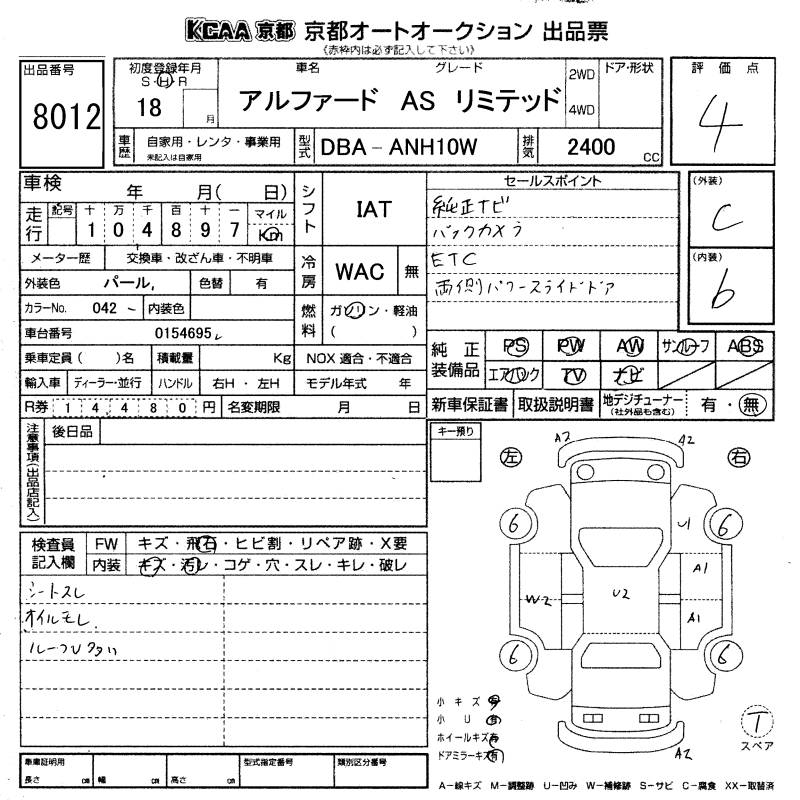 KCAA 京都 京都オートオークション 出品票
《赤枠内は必ず記入して下さい》
出品番号
8012
初度登録年月
S・H・R
18 月
車名 グレード
アルファード AS リミテッド
2WD
4WD
ドア・形状
評価点
4
車歴
自家用・レンタ・事業用
未記入は自家用
型式
DBA-ANH10W
排気
2400 CC
車検 年 月( 日)
走行
記号 十 万 千 百 十 一 マイル
1 0 4 8 9 7 Km
シフト
IAT
セールスポイント
純正ナビ
バックカメラ
ETC
両側パワースライドドア
(外装)
C
(内装)
b
メーター歴 交換車・改ざん車・不明車
外装色 パール, 色替 有
冷房
WAC 無
カラーNo. 042 内装色
燃料
ガソリン・軽油
( )
車台番号 0154695
純正装備品
PS PW AW サンルーフ ABS
エアバック TV ナビ
乗車定員( )名 積載量 Kg NOX 適合・不適合
輸入車 ディーラー・並行 ハンドル 右H・左H モデル年式 年
R券 14,480円 名変期限 月 日
新車保証書 取扱説明書 地デジチューナー (社外品も含む) 有・無
注意事項(出品店記入)
後日品
キー預り
左
右
A2 A2
6 6
U1
A1
W2 U2
A1
6 6
A2
検査員記入欄
FW キズ・飛石・ヒビ割・リペア跡・X要
内装 キズ・汚レ・コゲ・穴・スレ・キレ・破レ
シートスレ
オイルモレ
小キズ 有
小U 有
ホイールキズ 有
ドアミラーキズ 有
T
スペア
車庫証明用
長さ cm 幅 cm 高さ cm
型式指定番号
類別区分番号
A-線キズ M-調整跡 U-凹み W-補修跡 S-サビ C-腐食 XX-取替済